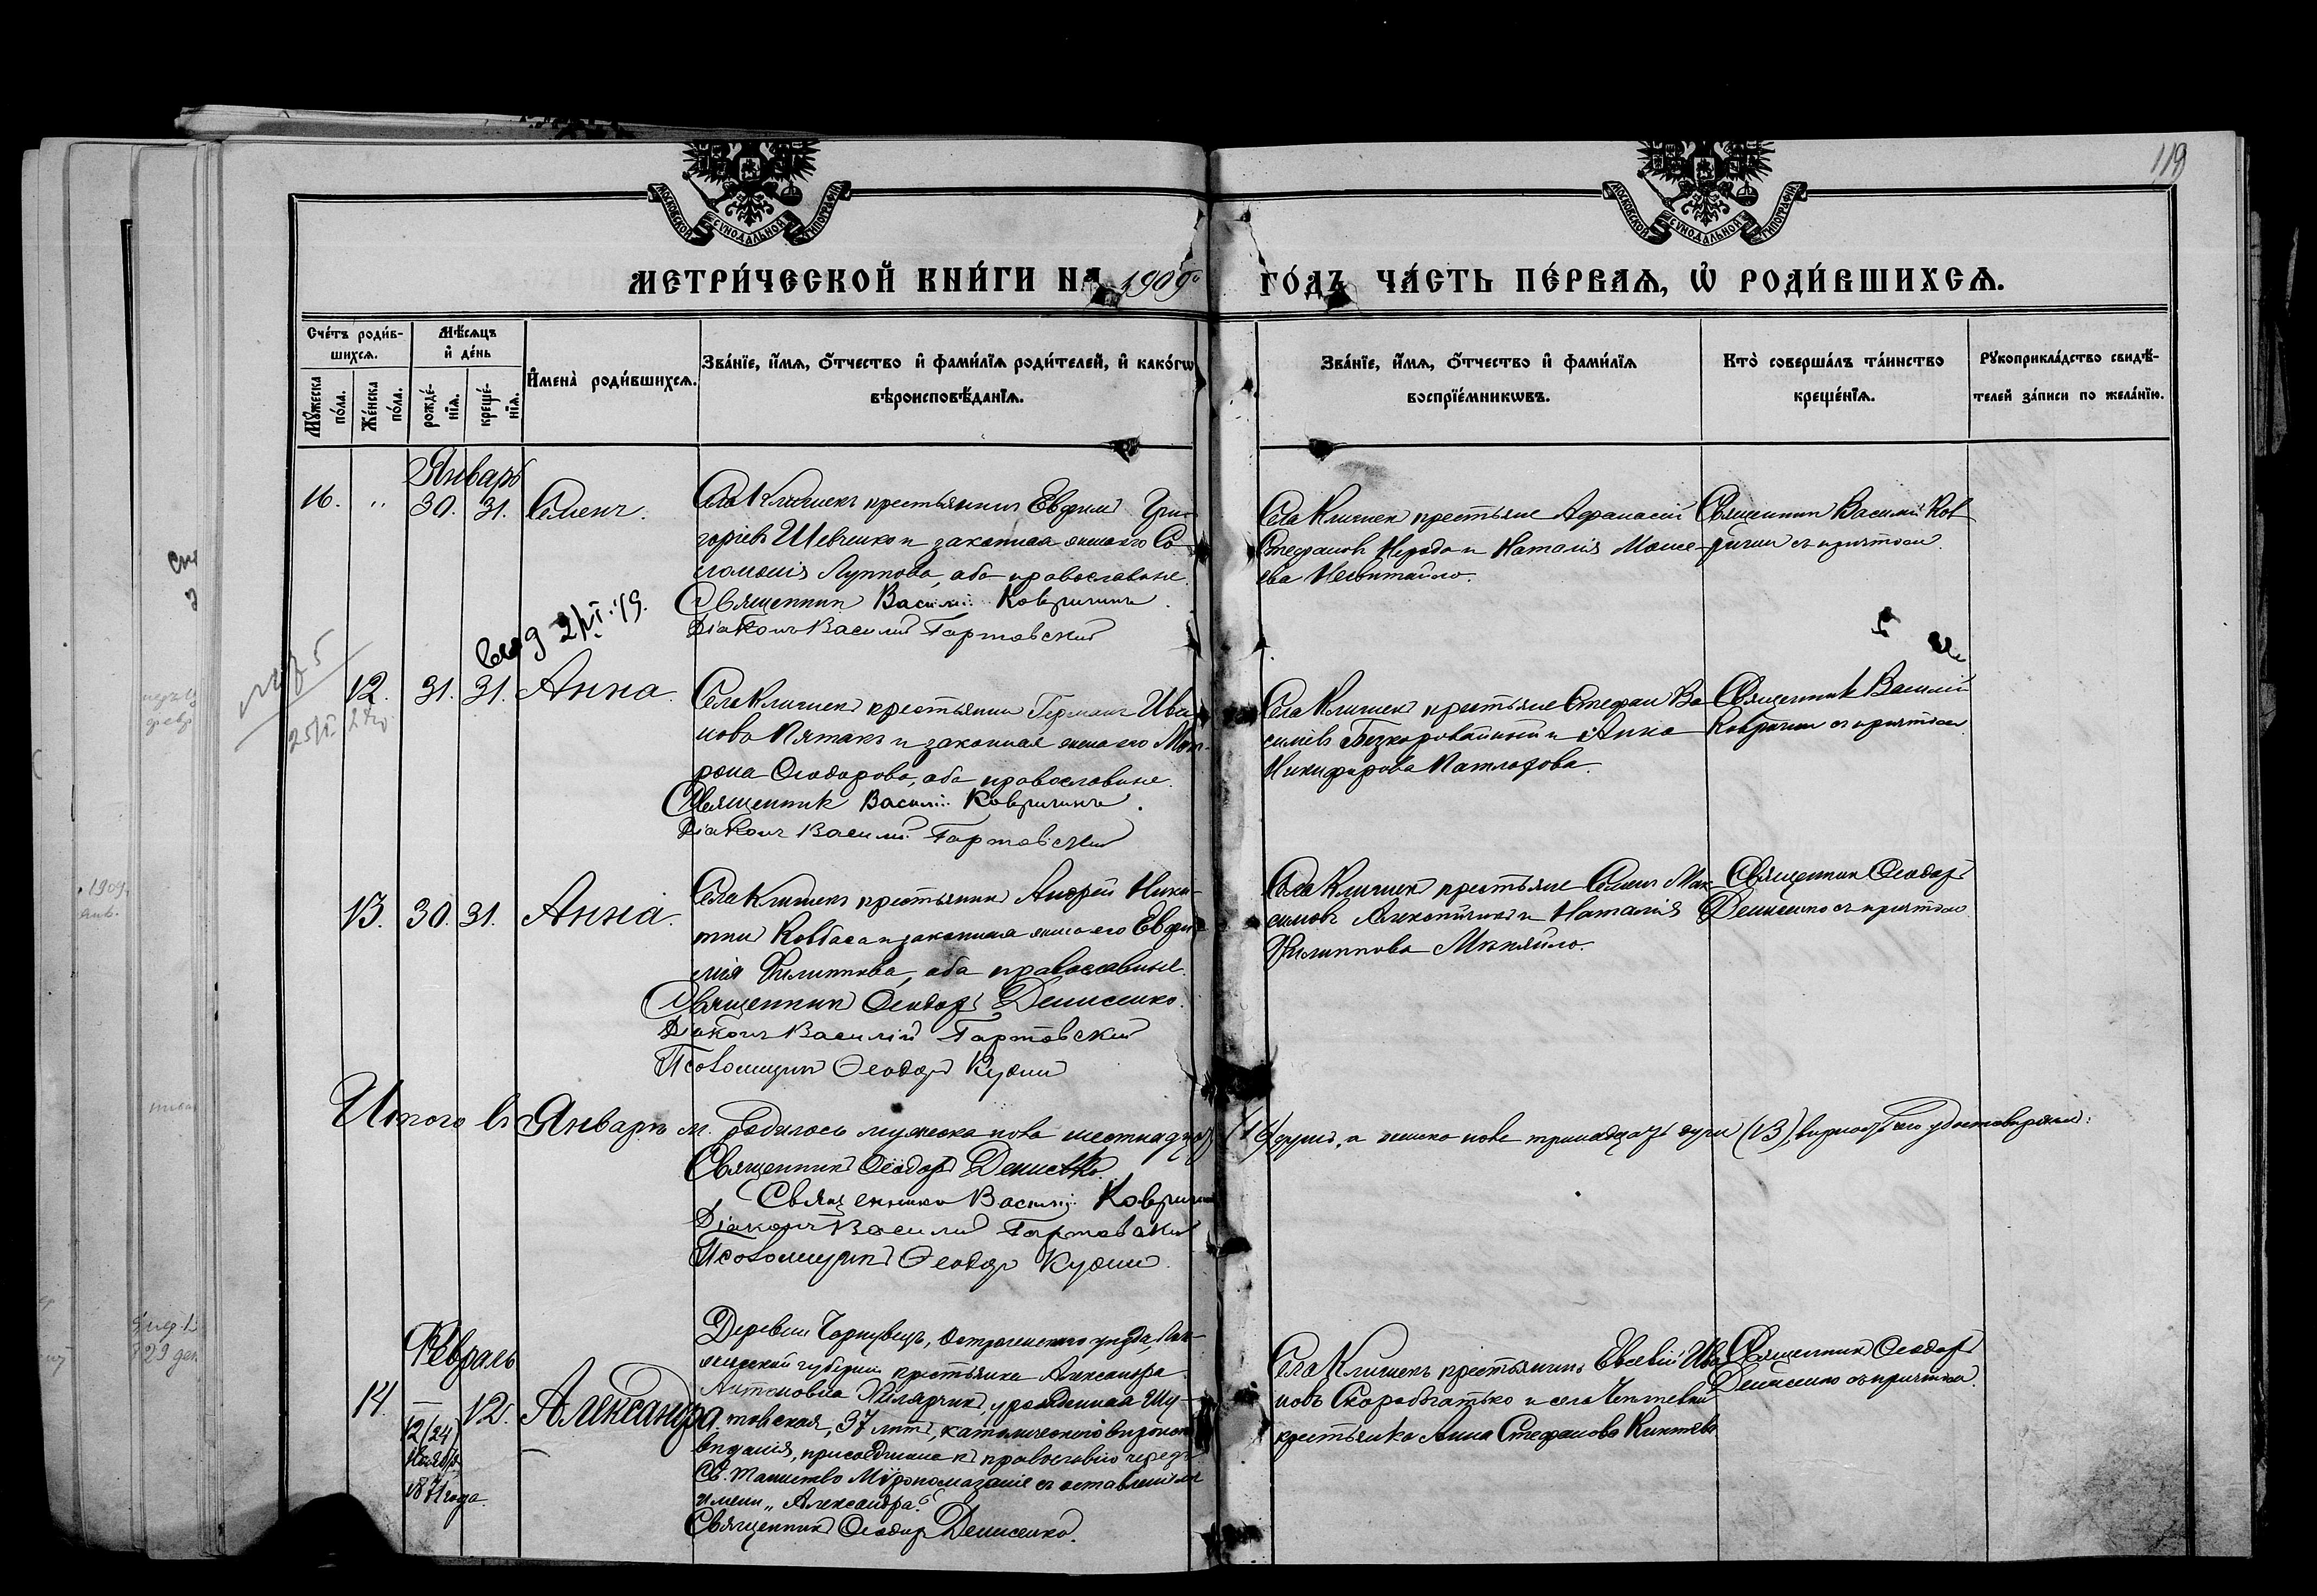 119
МОСКОВСКОЙ СУНОДАЛЬНОЙ ТИПОГРАФІИ
МОСКОВСКОЙ СУНОДАЛЬНОЙ ТИПОГРАФІИ
МЕТРИ́ЧЕСКОЙ КНИ́ГИ НА 1909
ГО́ДЪ ЧА́СТЬ ПЕ́РВАЯ, Ѽ РОДИ́ВШИХСЯ.
Сче́тъ роди́в-
шихся.
Мѣ́сяцъ
и҆ де́нь
Мꙋ́жеска по́ла.
Же́нска по́ла.
рожде́-
нїя.
креще́-
нїя.
И҆мена̀ роди́вшихся.
Зва́нїе, и҆́мя, ѻ҆́тчество и҆ фами́лїя роди́телей, и҆ како́гѡ
вѣроисповѣ́данїя.
Зва́нїе, и҆́мя, ѻ҆́тчество и҆ фами́лїя
воспрїе́мникѡвъ.
Кто̀ соверша́лъ та́инство
креще́нїя.
Рꙋкоприкла́дство свидѣ́-
телей за́писи по жела́нїю.
Январь
16. „ 30. 31. Семенъ.
Села Клишекъ крестьянинъ Евфимій Гри-
горіевъ Шевченко и законная жена его Со-
ломонія Луппова, оба православные.
Священникъ Василій Ковригинъ.
Діаконъ Василій Гартовскій
Села Клишекъ крестьяне Афанасій
Стефановъ Нерода и Наталія Моисе-
ева
Священникъ Василій Ков-
ригинъ съ причтомъ.
12. 31. 31. Анна.
Села Клишекъ крестьянинъ Германъ Ива-
новъ Пятакъ и законная жена его Мат-
рона Ѳеодорова, оба православные.
Священникъ Василій Ковригинъ.
Діаконъ Василій Гартовскій
Села Клишекъ крестьяне Стефанъ Ва-
силіевъ Безкоровайный и Анна
Никифорова
Священникъ Василій
Ковригинъ съ причтомъ
13. 30. 31. Анна.
Села Клишекъ крестьянинъ Андрей Ники-
тинъ Ковбаса и законная жена его Евфи-
мія Филиппова, оба православные.
Священникъ Ѳеодоръ Денисенко.
Діаконъ Василій Гартовскій
Псаломщикъ Ѳеодоръ
Села Клишекъ крестьяне Семенъ Мак-
симовъ и Наталія
Филиппова
Священникъ Ѳеодоръ
Денисенко съ причтомъ
Итого въ Январѣ м. родилось мужеска пола шестнадцать (16) душъ, а женска пола тринадцать душъ (13), вѣрность сего удостовѣряемъ:
Священникъ Ѳеодоръ Денисенко.
Священникъ Василій Ковригинъ
Діаконъ Василій Гартовскій
Псаломщикъ Ѳеодоръ
Февраль
14. — 12. Александра
12 (24)
Ноября
1871 года.
Деревни
губерніи крестьянка Александра
Антоновна урожденная
37 лѣтъ, католическаго вѣроиспо-
вѣданія, присоединена къ православію чрезъ
Св. таинство Мѵропомазаніе съ оставленіемъ
имени „Александра“.
Священникъ Ѳеодоръ Денисенко.
Села Клишекъ крестьянинъ Евсевій Ива-
новъ Скоробагатько и села
крестьянка Анна Стефанова
Священникъ Ѳеодоръ
Денисенко съ причтомъ.